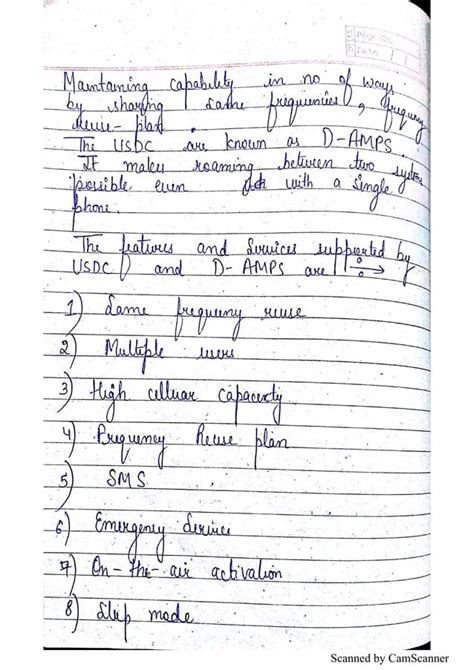 PAGE NO.
DATE / /
Maintaining capability in no of ways
by sharing same frequencies, frequency
Reuse-plan
The USDC are known as D-AMPS.
It makes roaming between two system
possible even with a single
phone.
The features and Services supported by
USDC and D-AMPS are :→
1) Same frequeny reuse
2) Multiple users
3) High celluar capacity
4) Frequency Reuse plan
5) SMS
6) Emergency Service
7) On-the-air activation
8) Slep mode
Scanned by CamScanner